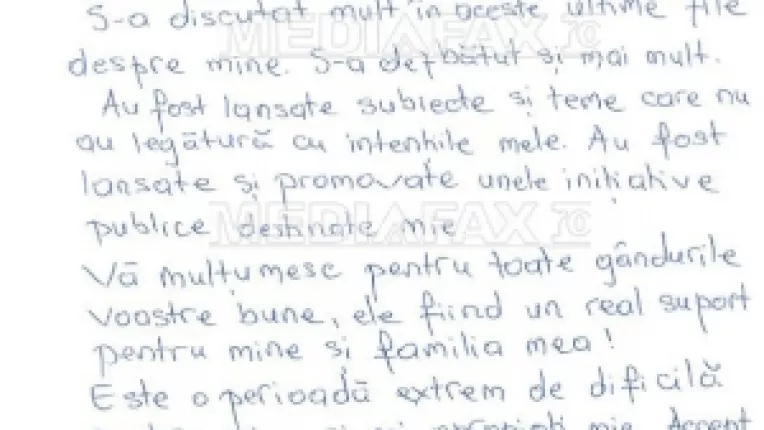 S-a discutat mult în aceste ultime zile
despre mine. S-a dezbătut și mai mult.
Au fost lansate subiecte și teme care nu
au legătură cu intențiile mele. Au fost
lansate și promovate unele inițiative
publice destinate mie
Vă mulțumesc pentru toate gândurile
voastre bune, ele fiind un real suport
pentru mine și familia mea!
Este o perioadă extrem de dificilă
apropiați mie. Accent
MEDIAFAX.RO
MEDIAFAX.RO